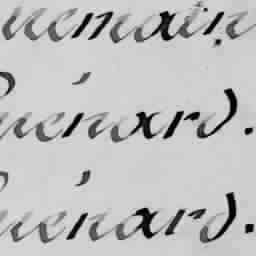 uemain
Guénard.
Guénard.